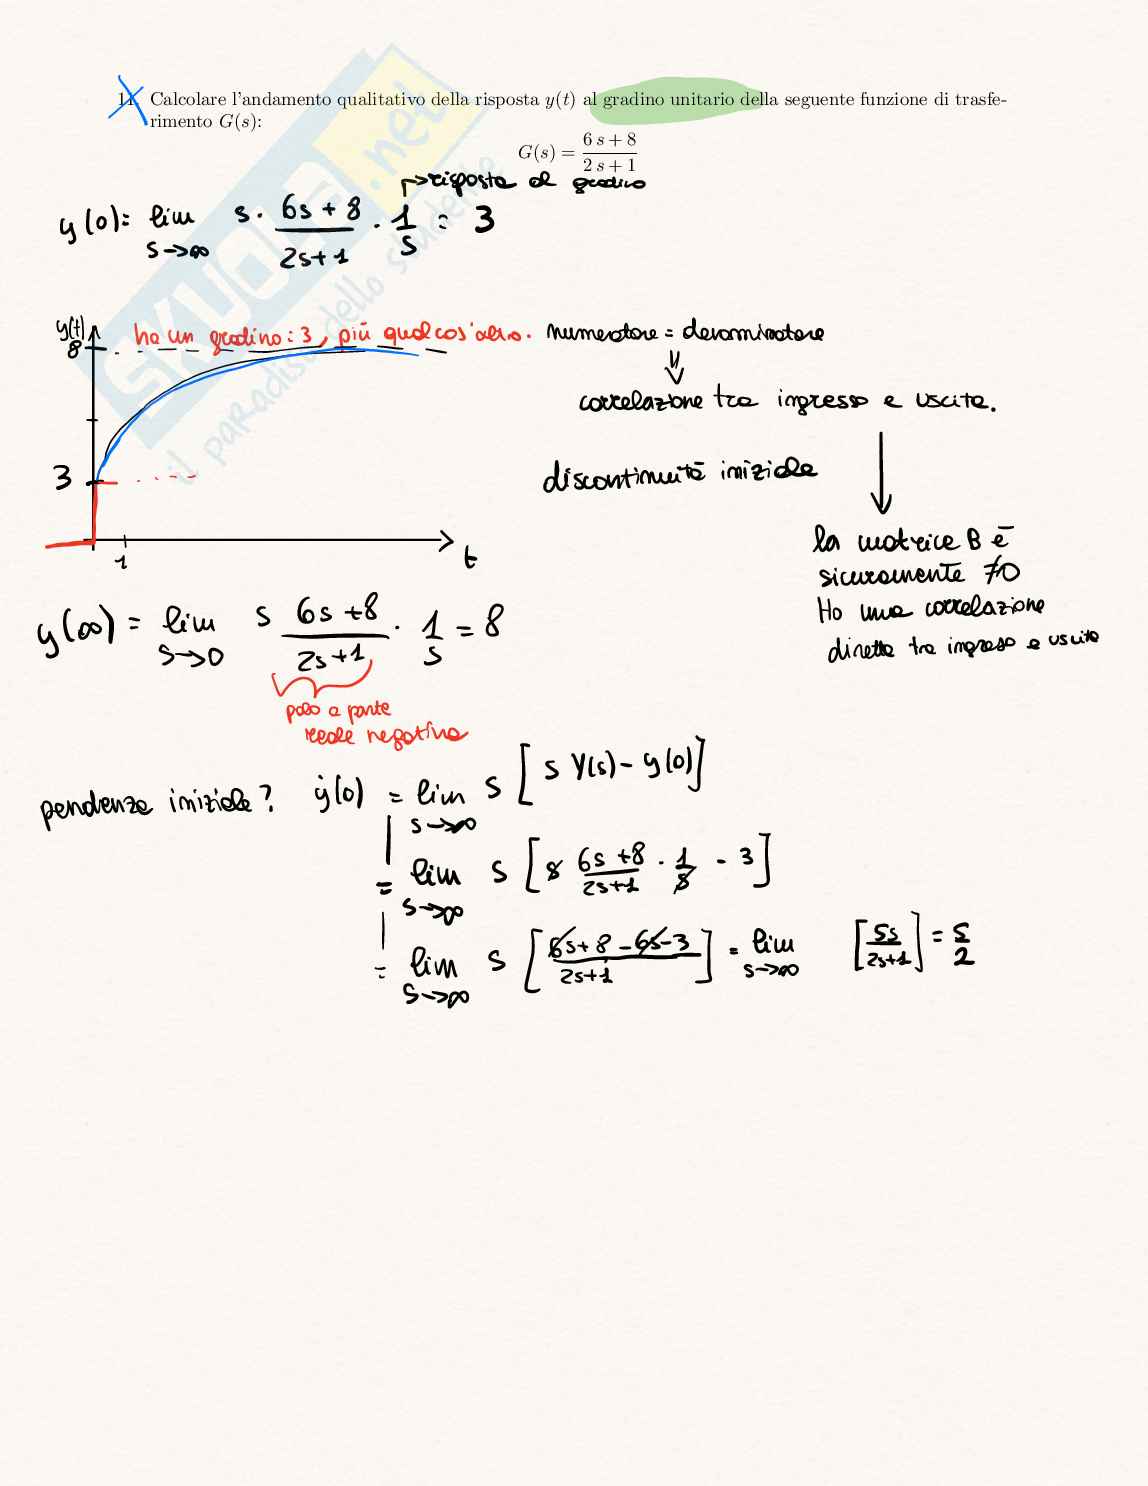 11. Calcolare l'andamento qualitativo della risposta y(t) al gradino unitario della seguente funzione di trasfe-
rimento G(s):
G(s) = (6 s + 8)/(2 s + 1)
↱risposta al gradino
y(0): lim s→∞ s · (6s + 8)/(2s+1) · 1/s = 3
y(t)
ha un gradino: 3, più qualcos'altro. numeratore = denominatore
8
⇓
correlazione tra ingresso e uscita.
discontinuità iniziale
3
la matrice B è
sicuramente ≠0
Ho una correlazione
diretta tra ingresso e uscita
1
t
y(∞) = lim s→0 s (6s+8)/(2s+1) · 1/s = 8
polo a parte
reale negativa
pendenza iniziale? ẏ(0) = lim s→∞ s [s Y(s) - y(0)]
= lim s→∞ s [s (6s+8)/(2s+1) · 1/s - 3]
= lim s→∞ s [(6s+8-6s-3)/(2s+1)] = lim s→∞ [5s/(2s+1)] = 5/2
SKUOLA.net
il paradiso dello studente